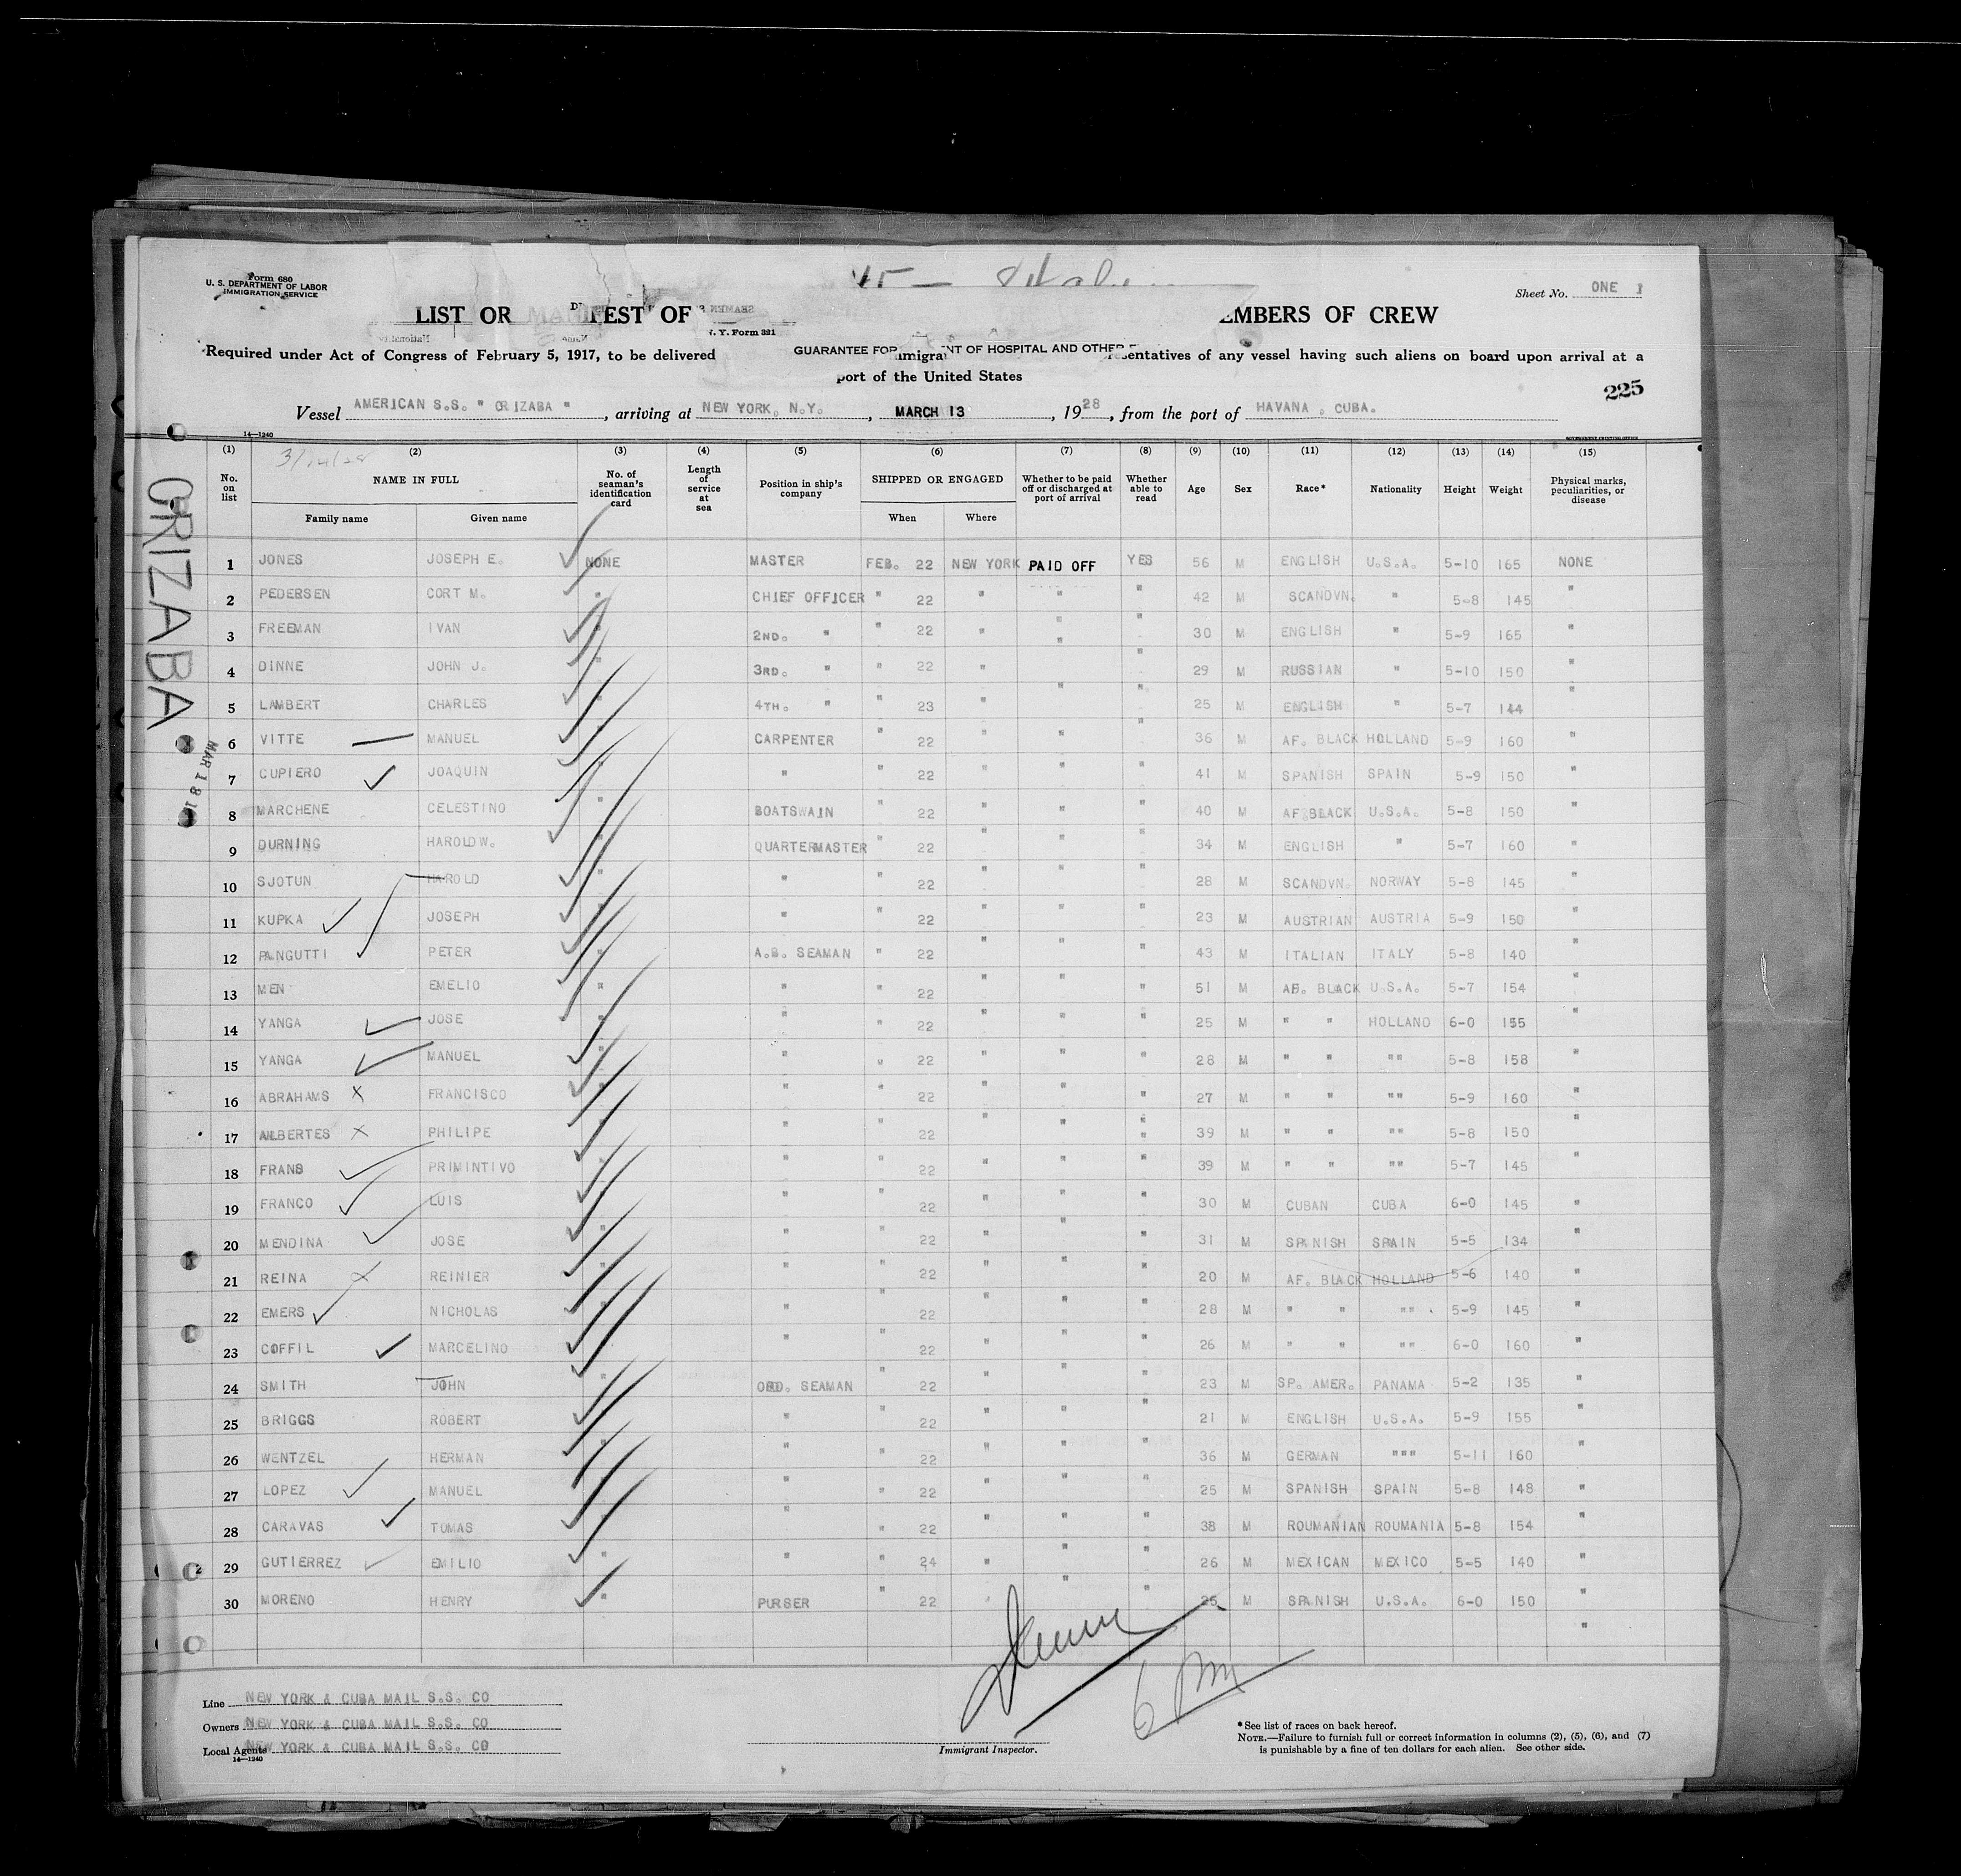 Form 680
U. S. DEPARTMENT OF LABOR
IMMIGRATION SERVICE
Sheet No. ONE 1
LIST OR MANIFEST OF EMBERS OF CREW
N. Y. Form 321
GUARANTEE FOR NT OF HOSPITAL AND OTHER
Required under Act of Congress of February 5, 1917, to be delivered immigra resentatives of any vessel having such aliens on board upon arrival at a
port of the United States
225
Vessel AMERICAN S.S. " ORIZABA " , arriving at NEW YORK, N.Y. , MARCH 13 , 1928, from the port of HAVANA , CUBA.
14—1240
GOVERNMENT PRINTING OFFICE
ORIZABA
(1) (2) (3) (4) (5) (6) (7) (8) (9) (10) (11) (12) (13) (14) (15)
No. on list NAME IN FULL Family name Given name No. of seaman's identification card Length of service at sea Position in ship's company SHIPPED OR ENGAGED When Where Whether to be paid off or discharged at port of arrival Whether able to read Age Sex Race* Nationality Height Weight Physical marks, peculiarities, or disease
1 JONES JOSEPH E. NONE MASTER FEB. 22 NEW YORK PAID OFF YES 56 M ENGLISH U.S.A. 5-10 165 NONE
2 PEDERSEN CORT M. " CHIEF OFFICER " 22 " " " 42 M SCANDVN. " 5-8 145 "
3 FREEMAN IVAN " 2ND. " " 22 " " " 30 M ENGLISH " 5-9 165 "
4 DINNE JOHN J. " 3RD. " " 22 " " " 29 M RUSSIAN " 5-10 150 "
5 LAMBERT CHARLES 4TH. " " 23 " " " 25 M ENGLISH " 5-7 144 "
6 VITTE MANUEL CARPENTER " 22 " " " 36 M AF. BLACK HOLLAND 5-9 160 "
7 CUPIERO JOAQUIN " " " 22 " " " 41 M SPANISH SPAIN 5-9 150 "
8 MARCHENE CELESTINO " BOATSWAIN " 22 " " " 40 M AF.BLACK U.S.A. 5-8 150 "
9 DURNING HAROLD W. " QUARTERMASTER " 22 " " " 34 M ENGLISH " 5-7 160 "
10 SJOTUN HAROLD " " " 22 " " " 28 M SCANDVN. NORWAY 5-8 145 "
11 KUPKA JOSEPH " " 22 " " " 23 M AUSTRIAN AUSTRIA 5-9 150 "
12 PANGUTTI PETER " A.B. SEAMAN " 22 " " " 43 M ITALIAN ITALY 5-8 140 "
13 MEN EMELIO " " " 22 " " " 51 M AF. BLACK U.S.A. 5-7 154 "
14 YANGA JOSE " " 22 " " " 25 M " " HOLLAND 6-0 155 "
15 YANGA MANUEL " " " 22 " " " 28 M " " "" 5-8 158 "
16 ABRAHAMS FRANCISCO " " " 22 " " " 27 M " " "" 5-9 160 "
17 ALBERTES PHILIPE " " 22 " " " 39 M " " "" 5-8 150 "
18 FRANS PRIMINTIVO " " 22 " " " 39 M " " "" 5-7 145 "
19 FRANCO LUIS " " " 22 " " " 30 M CUBAN CUBA 6-0 145 "
20 MENDINA JOSE " " " 22 " " " 31 M SPANISH SPAIN 5-5 134 "
21 REINA REINIER " " 22 " " " 20 M AF. BLACK HOLLAND 5-6 140 "
22 EMERS NICHOLAS " " 22 " " " 28 M " " "" 5-9 145 "
23 COFFIL MARCELINO " " " 22 " " " 26 M " " "" 6-0 160 "
24 SMITH JOHN " ORD. SEAMAN " 22 " " " 23 M SP. AMER. PANAMA 5-2 135 "
25 BRIGGS ROBERT " " 22 " " " 21 M ENGLISH U.S.A. 5-9 155 "
26 WENTZEL HERMAN " " " 22 " " " 36 M GERMAN """ 5-11 160 "
27 LOPEZ MANUEL " " 22 " " " 25 M SPANISH SPAIN 5-8 148 "
28 CARAVAS TOMAS " " 22 " " " 38 M ROUMANIAN ROUMANIA 5-8 154 "
29 GUTIERREZ EMILIO " " " 24 " " " 26 M MEXICAN MEXICO 5-5 140 "
30 MORENO HENRY " PURSER " 22 " " 25 M SPANISH U.S.A. 6-0 150 "
"
6 PM
Line NEW YORK & CUBA MAIL S.S. CO
Owners NEW YORK & CUBA MAIL S.S. CO
Local Agents NEW YORK & CUBA MAIL S.S. CO
14—1240
Immigrant Inspector.
*See list of races on back hereof.
NOTE.—Failure to furnish full or correct information in columns (2), (5), (6), and (7)
is punishable by a fine of ten dollars for each alien. See other side.